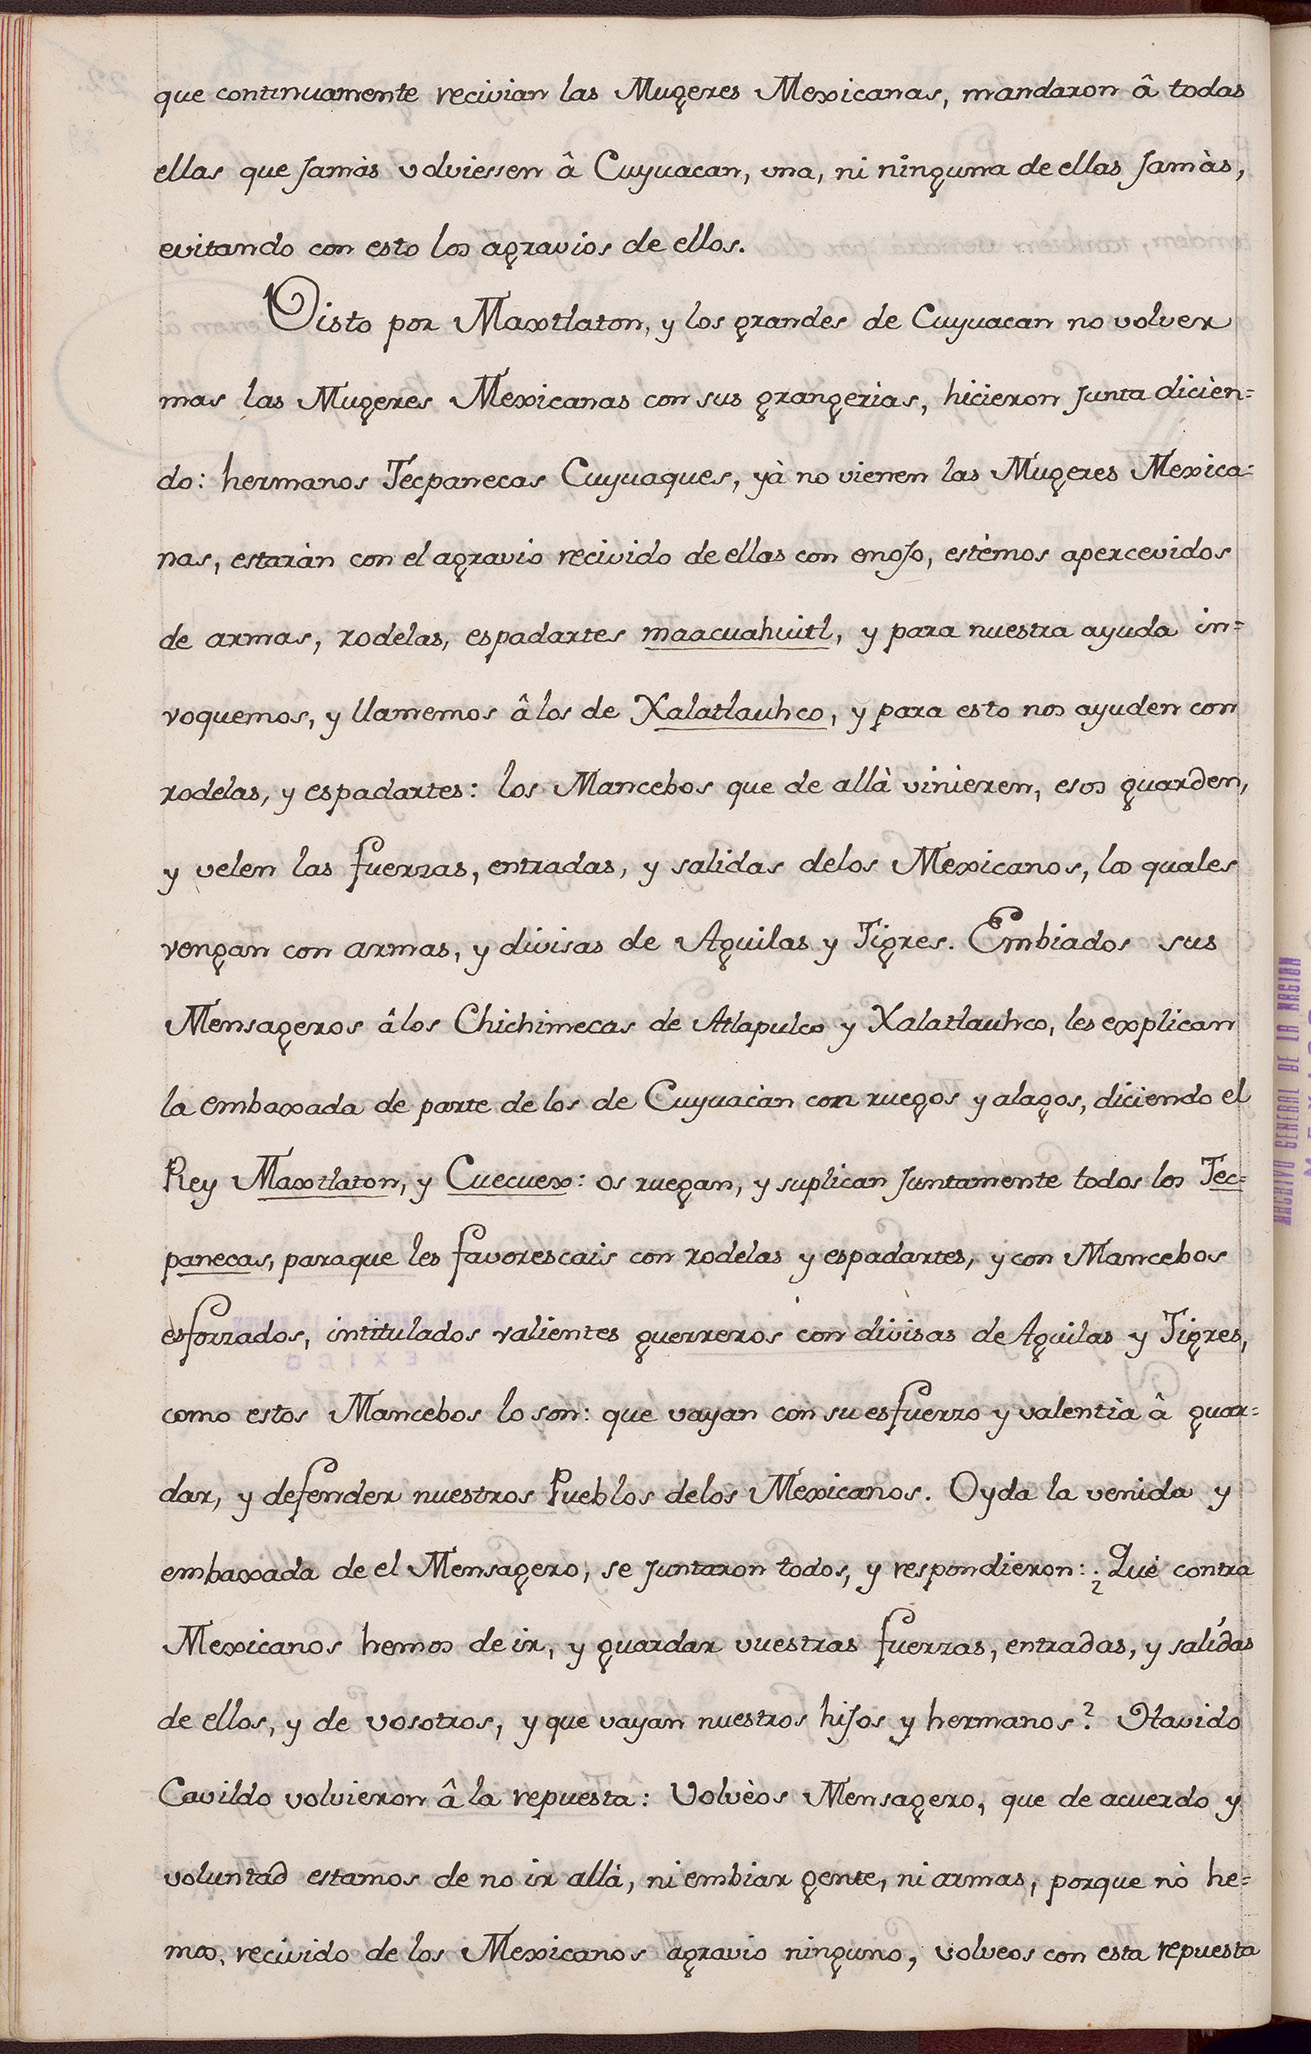 que continuamente recivian las Mugeres Mexicanas, mandaron â todas
ellas que Jamàs volviessen â Cuyuacan, una, ni ninguna de ellas Jamàs,
evitando con esto los agravios de ellos.
Visto por Maxtlaton, y los grandes de Cuyuacan no volver
mas las Mugeres Mexicanas con sus grangerias, hicieron Junta dicièn=
do: hermanos Tecpanecas Cuyuaques, yà no vienen las Mugeres Mexica=
nas, estaràn con el agravio recivido de ellas con enoJo, estèmos apercevidos
de armas, rodelas, espadartes maacuahuitl, y para nuestra ayuda in=
voquemos, y llamemos â los de Xalatlauhco, y para esto nos ayuden con
rodelas, y espadartes: los Mancebos que de allà vinieren, esos guarden,
y velen las fuerzas, entradas, y salidas delos Mexicanos, los quales
vengan con armas, y divisas de Aguilas y Tigres. Embiados sus
Mensageros â los Chichimecas de Atlapulco y Xalatlauhco, les explican
la embaxada de parte de los de Cuyuacàn con ruegos y alagos, diciendo el
Rey Maxtlaton, y Cuecuex: os ruegan, y suplican Juntamente todos los Tec=
panecas, paraque les favorescais con rodelas y espadartes, y con Mancebos
esforzados, intitulados valientes guerreros con divisas de Aguilas y Tigres,
como estos Mancebos lo son: que vayan con su esfuerzo y valentìa â guar=
dar, y defender nuestros Pueblos delos Mexicanos. Oyda la venida y
embaxada de el Mensagero, se Juntaron todos, y respondieron: ¿Què contra
Mexicanos hemos de ir, y guardar vuestras fuerzas, entradas, y salidas
de ellos, y de vosotros, y que vayan nuestros hiJos y hermanos? Havido
Cavildo volvieron â la repuesta: Volvèos Mensagero, que de acuerdo y
voluntad estamos de no ir allà, ni embiar gente, ni armas, porque nò he=
mos recivido de los Mexicanos agravio ninguno, volveos con esta repuesta
ARCHIVO GENERAL DE LA NACION